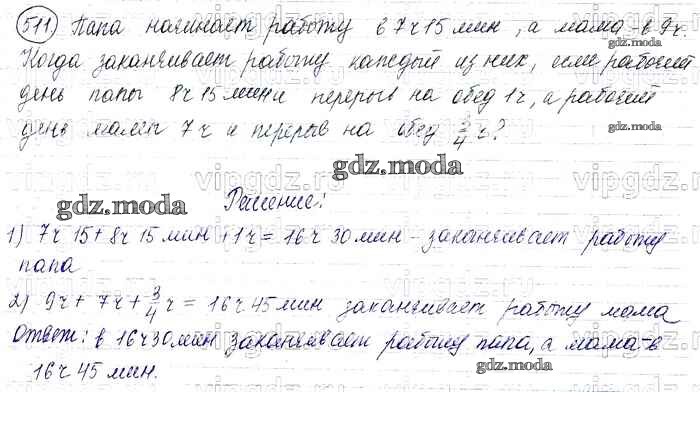 511) Папа начинает работу в 7ч 15 мин, а мама в 9ч.
Когда заканчивает работу каждый из них, если рабочий
день папы 8ч 15 мин и перерыв на обед 1ч, а рабочий
день мамы 7ч и перерыв на обед 3/4 ч?
Решение:
1) 7ч 15 + 8ч 15 мин + 1ч = 16ч 30 мин - заканчивает работу
папа
2) 9ч + 7ч + 3/4 ч = 16ч 45 мин заканчивает работу мама
Ответ: в 16ч 30 мин заканчивает работу папа, а мама - в
16ч 45 мин.
gdz.moda
gdz.moda
gdz.moda
gdz.moda
gdz.moda
gdz.moda
vipgdz.ru